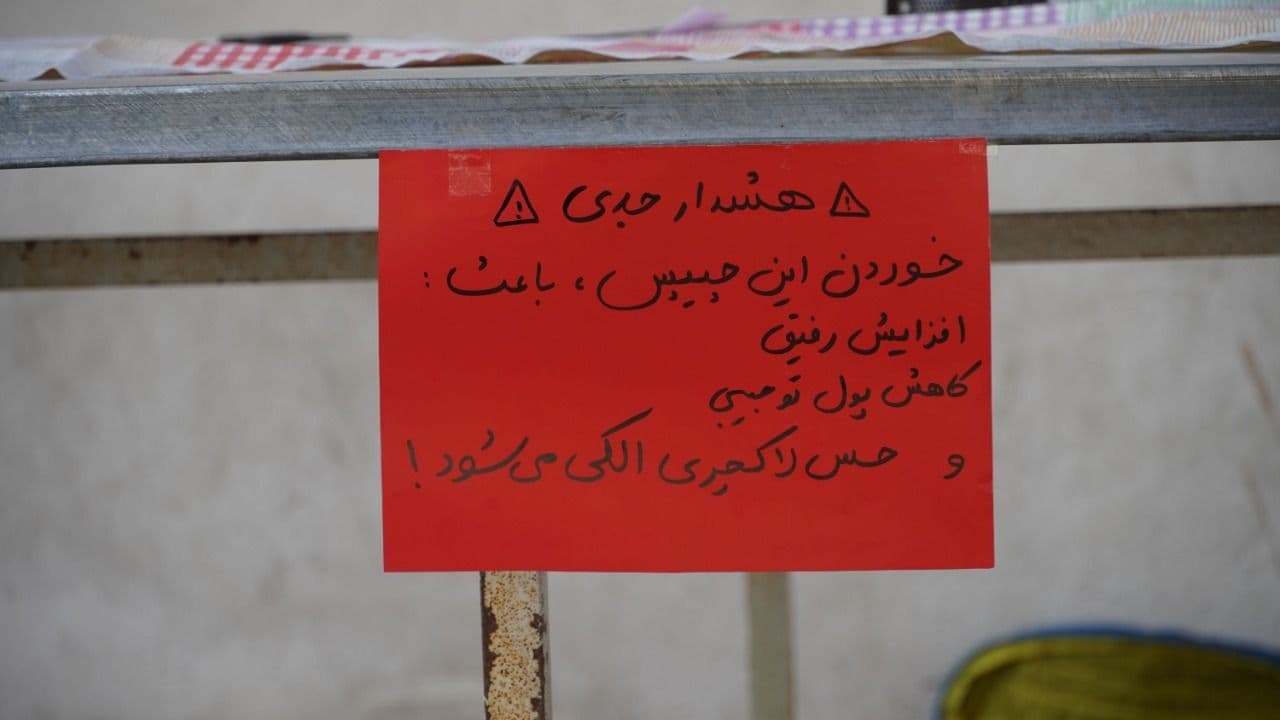 ⚠ هشدار جدی ⚠
خوردن این چیپس ، باعث :
افزایش رفیق
کاهش پول توجیبی
و حس لاکچری الکی می‌شود !